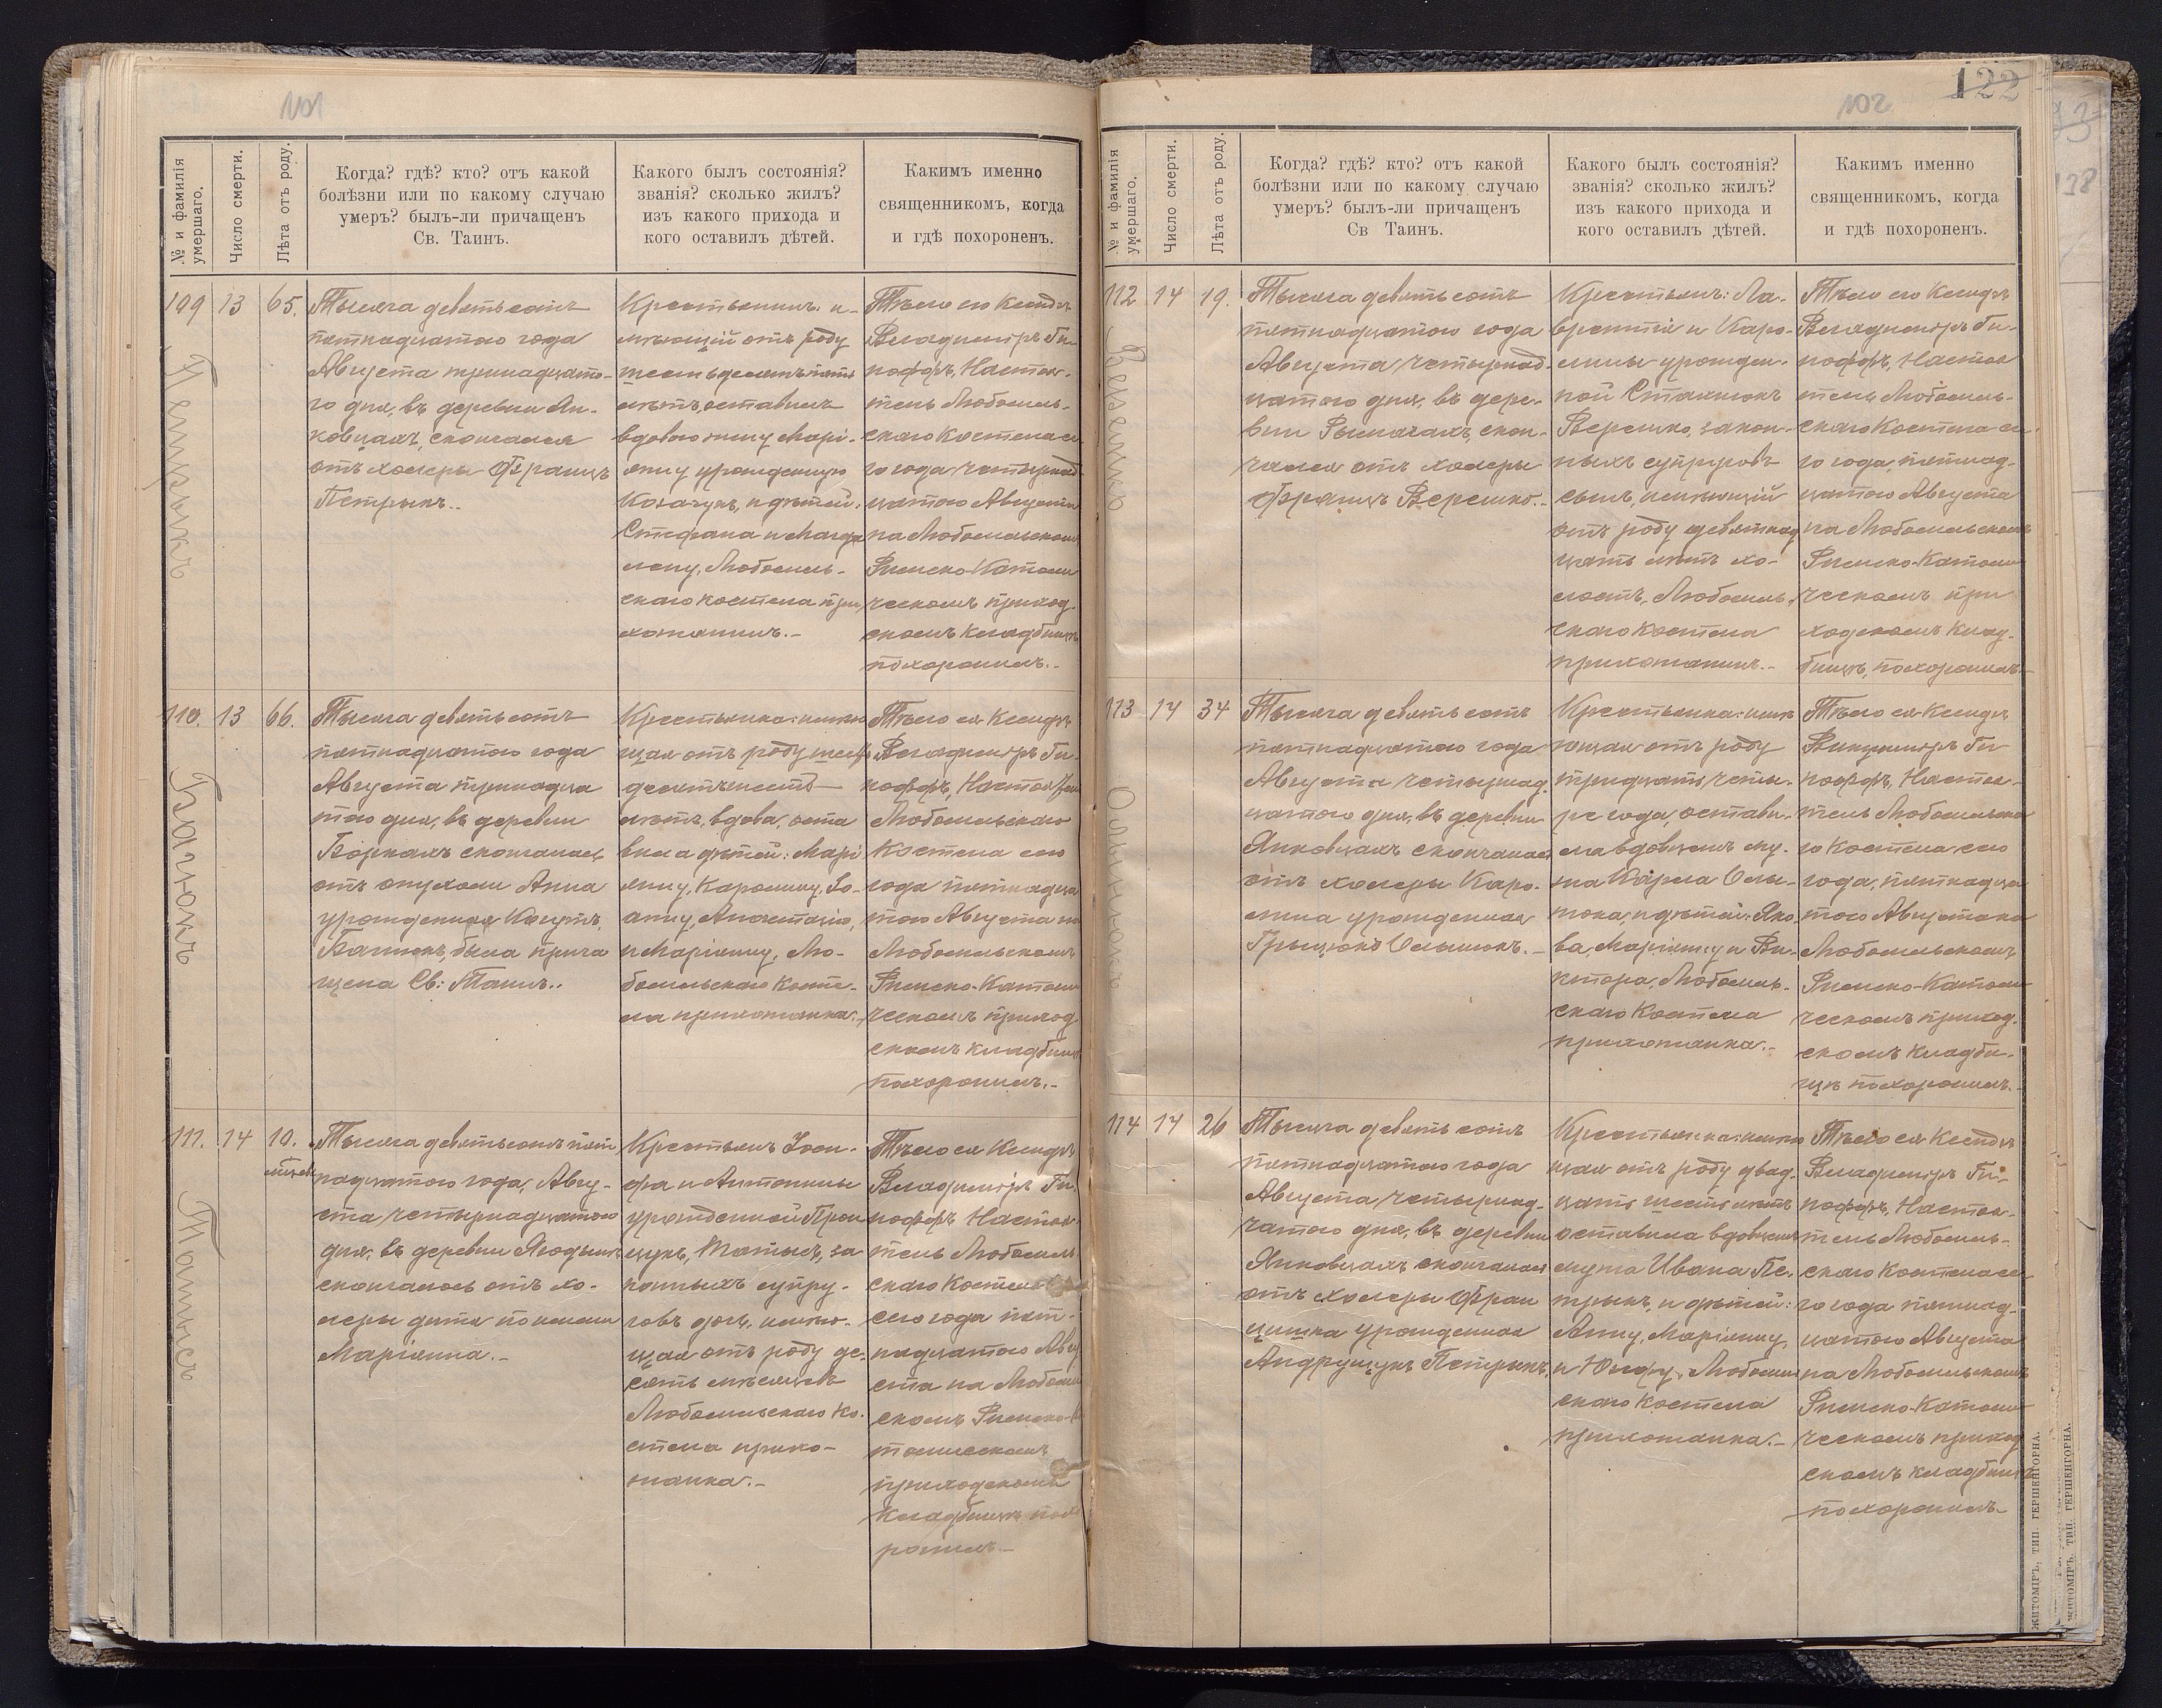 101
№ и фамилія умершаго.
Число смерти.
Лѣта отъ роду.
Когда? гдѣ? кто? отъ какой
болѣзни или по какому случаю
умеръ? былъ-ли причащенъ
Св. Таинъ.
Какого былъ состоянія?
званія? сколько жилъ?
изъ какого прихода и
кого оставилъ дѣтей.
Какимъ именно
священникомъ, когда
и гдѣ похороненъ.
109
Петрыкъ
13
65.
Тысяча девятьсотъ
пятнадцатаго года
Августа тринадцата-
го дня, въ деревни Ян-
ковцахъ, скончался
отъ холеры Францъ
Петрыкъ..
Крестьянинъ: и-
мѣющій отъ роду
шестьдесятъ пять
лѣтъ, оставилъ
вдовою жену Марі-
анну урожденную
Козачукъ, и дѣтей:
Стефана и Магда
лену, Любомль-
скаго костела при
хожанинъ.-
Тѣло его Ксендзъ
Владиміръ Ги-
поффъ, Настоя-
тель Любомль-
скаго Костела се-
го года четырнад
цатаго Августа
на Любомльскомъ
Римско-Католи
ческомъ приход
скомъ кладбищѣ
похоронилъ.-
110.
Багюкъ
13
66.
Тысяча девятьсотъ
пятнадцатаго года
Августа тринадца
таго дня, въ деревни
Боркахъ скончалась
отъ опухоли Анна
урожденная
была прича
щена Св: Таинъ..
Крестьянка: имѣю
щая отъ роду шесть
десятъ шесть
лѣтъ, вдова, оста
вила дѣтей: Марі
анну, Каролину, Зо-
Анастасію,
и Маріанну, Лю-
бомльскаго косте-
ла прихожанка.-
Тѣло ея Ксендзъ
Владиміръ Ги-
поффъ, Настоятель
Любомльскаго
Костела сего
года пятнадца
таго Августа на
Любомльскомъ
Римско-Католи
ческомъ приход
скомъ кладбищѣ
похоронилъ.-
111.
14
10.
мѣсяц.
Тысяча девятьсотъ пят
надцатаго года, Авгу-
ста четырнадцатаго
дня, въ деревни Ягодынѣ
скончалось отъ хо-
леры дитя по имени
Маріанна.-
Крестьянъ Іоси-
фа и Антонины
урожденной
за
конныхъ супру-
говъ дочь, имѣю-
щая отъ роду де-
сять мѣсяцевъ
Любомльскаго ко-
стела прихо-
жанка.-
Тѣло ея Ксендзъ
Владиміръ Ги-
поффъ Настоя-
тель Любомль
скаго Костела
сего года пят-
надцатаго Авгу
ста на Любомль
скомъ Римско-Ка
толическомъ
приходскомъ
кладбищѣ похо
ронилъ.-
102
122
№ и фамилія умершаго.
Число смерти.
Лѣта отъ роду.
Когда? гдѣ? кто? отъ какой
болѣзни или по какому случаю
умеръ? былъ-ли причащенъ
Св Таинъ.
Какого былъ состоянія?
званія? сколько жилъ?
изъ какого прихода и
кого оставилъ дѣтей.
Какимъ именно
священникомъ, когда
и гдѣ похороненъ.
112
Верешко
14
19.
Тысяча девятьсотъ
пятнадцатаго года
Августа четырнад-
цатаго дня, въ дере-
вни Рымачахъ, скон-
чался отъ холеры
Францъ Верешко.-
Крестьянъ: Ла-
врентія и Каро-
лины урожден-
ной Стахнюкъ
Верешко, закон-
ныхъ супруговъ
сынъ, имѣющій
отъ роду девятнад
цать лѣтъ хо-
лостъ, Любомль-
скаго костела
прихожанинъ.-
Тѣло его Ксендзъ
Владиміръ Ги-
поффъ, Настоя
тель Любомль-
скаго Костела се-
го года, пятнад-
цатаго Августа
на Любомльскомъ
Римско-Католи
ческомъ при
ходскомъ клад-
бищѣ, похоронилъ.-
113
Олынюкъ
14
34
Тысяча девятьсотъ
пятнадцатаго года
Августа четырнад-
цатаго дня, въ деревни
Янковцахъ скончалась
отъ холеры Каро-
лина урожденная
Грыцюкъ Олынюкъ.-
Крестьянка: имѣ
ющая отъ роду
тридцать четы-
ре года, остави-
ла вдовцемъ му-
жа Карла Олы-
нюка, и дѣтей: Яко
ва, Маріанну и Ви-
ктора, Любомль-
скаго Костела
прихожанка.-
Тѣло ея Ксендзъ
Владиміръ Ги
поффъ, Настоя-
тель Любомльска
го Костела сего
года, пятнадца
таго Августа на
Любомльскомъ
Римско-Католи
ческомъ приход-
скомъ кладби-
щѣ похоронилъ.-
114
14
26
Тысяча девятьсотъ
пятнадцатаго года
Августа четырнад-
цатаго дня, въ деревни
Янковцахъ скончалась
отъ холеры Фран
цишка урожденная
Андрущукъ Петрыкъ.
Крестьянка: имѣю
щая отъ роду двад-
цать шесть лѣтъ
оставила вдовцемъ
мужа Ивана Пе-
трыкъ, и дѣтей:
Анну, Маріанну,
и Юзефу, Любомль
скаго Костела
прихожанка.-
Тѣло ея Ксендзъ
Владиміръ Ги-
поффъ, Настоя-
тель Любомль-
скаго Костела се-
го года пятнад-
цатаго Августа
на Любомльскомъ
Римско-Католи
ческомъ приход
скомъ кладбищѣ
похоронилъ.-
ЖИТОМІРЪ, ТИП. ГЕРШЕНГОРНА.
ЖИТОМІРЪ, ТИП. ГЕРШЕНГОРНА.